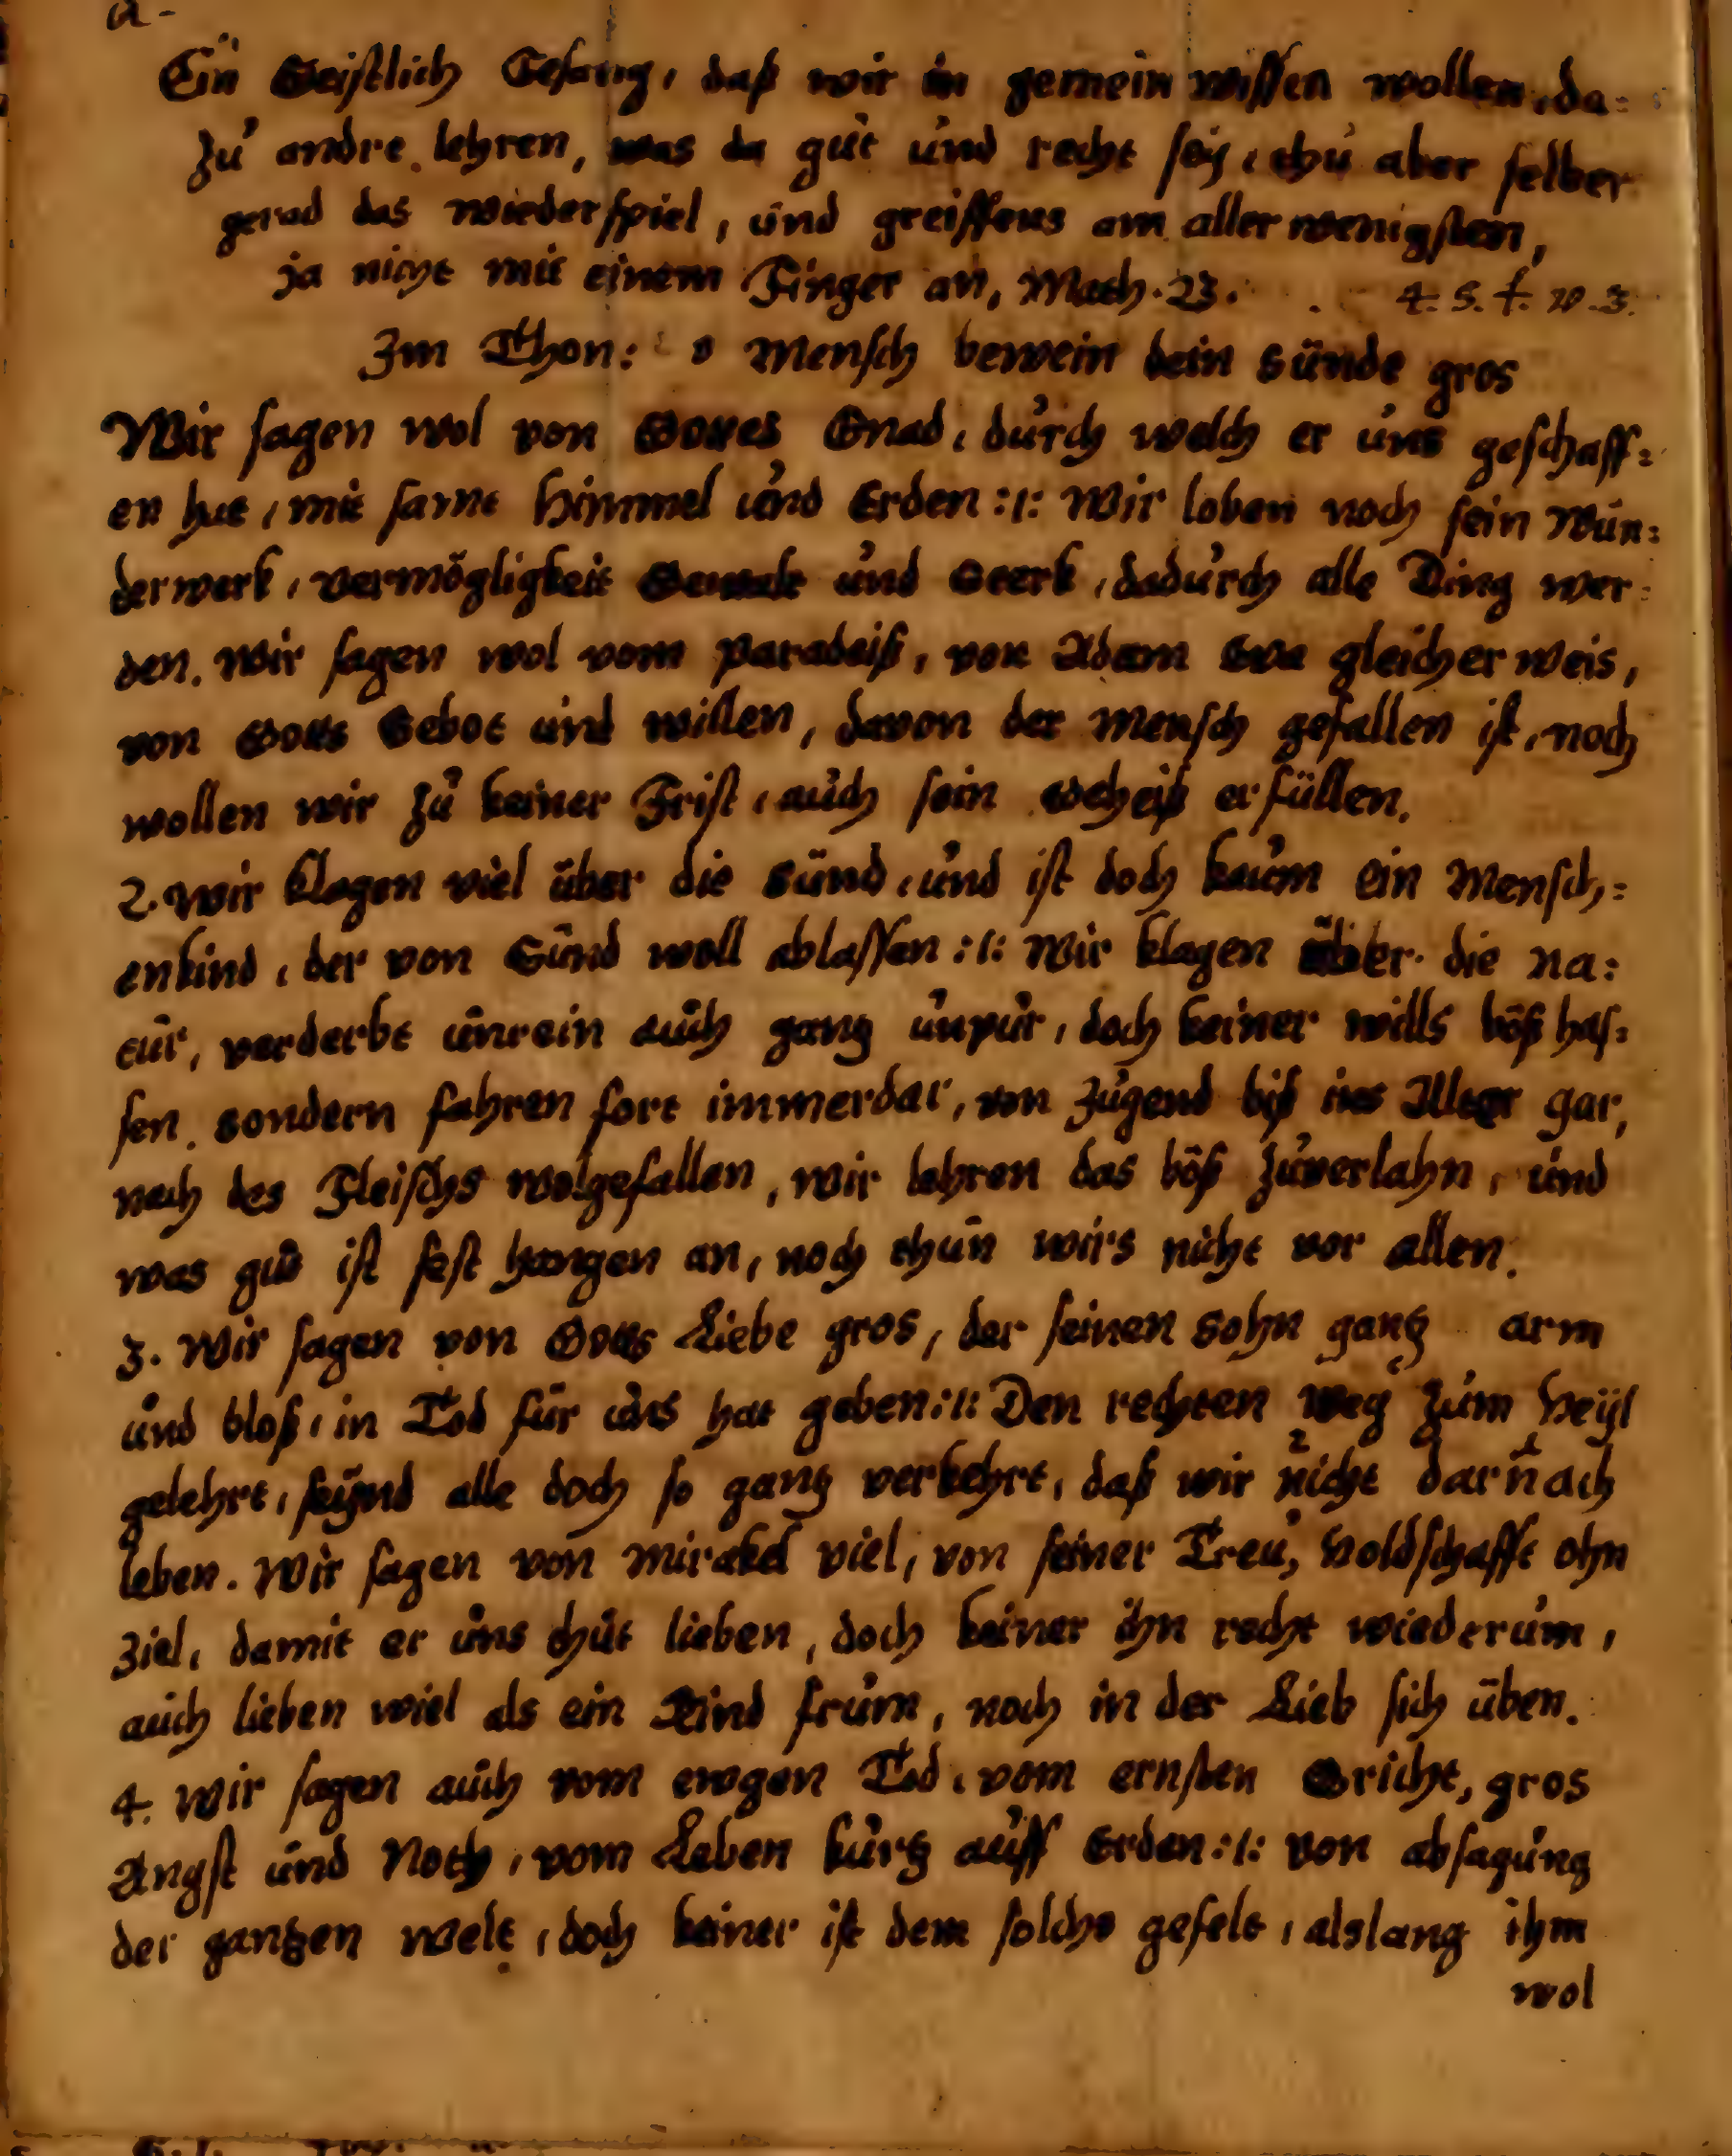 Ein Geistlich Gesang, daß wir in gemein wissen wollen, da=
zu andre lehren, was da gut und recht sey, thu aber selber
gerad das wiederspiel, und greiffens am aller wenigsten,
ja nicht mit einem Finger an, Math. 23.
Im Thon: o Mensch bewein dein Sünde gros
Wir sagen wol von Gottes Gnad, durch welch er uns geschaff=
en hat, mit samt Himmel und Erden :/: Wir loben noch sein Wun=
derwerk, vermögligkeit Gewalt und Sterk, dadurch alle Ding wer=
den. Wir sagen wol vom Paradeiß, von Adam Eva gleicher weis,
von Gotts Gebot und willen, davon der Mensch gefallen ist, noch
wollen wir zu keiner Frist, auch sein Geheiß erfüllen.
2. Wir klagen viel über die Sünd, und ist doch kaum ein Mensch=
enkind, der von Sünd woll ablassen :/: Wir klagen über die na=
tur, verderbt unrein auch gantz unpur, doch keiner wills böß has=
sen. sondern fahren fort immerdar, von Jugend biß ins Alter gar,
nach des Fleischs wolgefallen, wir lehren das böß zuverlahn, und
was gut ist fest hangen an, noch thun wirs nicht vor allen.
3. Wir sagen von Gotts Liebe gros, der seinen Sohn gantz arm
und bloß, in Tod für uns hat geben :/: Den rechten Weg zum Heyl
gelehrt, seynd alle doch so gantz verkehrt, daß wir nicht darnach
leben. Wir sagen von Mirakel viel, von seiner Treu, Holdschafft ohn
Ziel, damit er uns thut lieben, doch keiner ihn recht wiederum,
auch lieben wiel als ein Kind frum, noch in der Lieb sich üben.
4. Wir sagen auch vom ewgen Tod, vom ernsten Gricht, gros
Angst und Noth, vom Leben kurtz auff Erden :/: von absagung
der gantzen Welt, doch keiner ist dem solchs gefelt, alslang ihm
wol